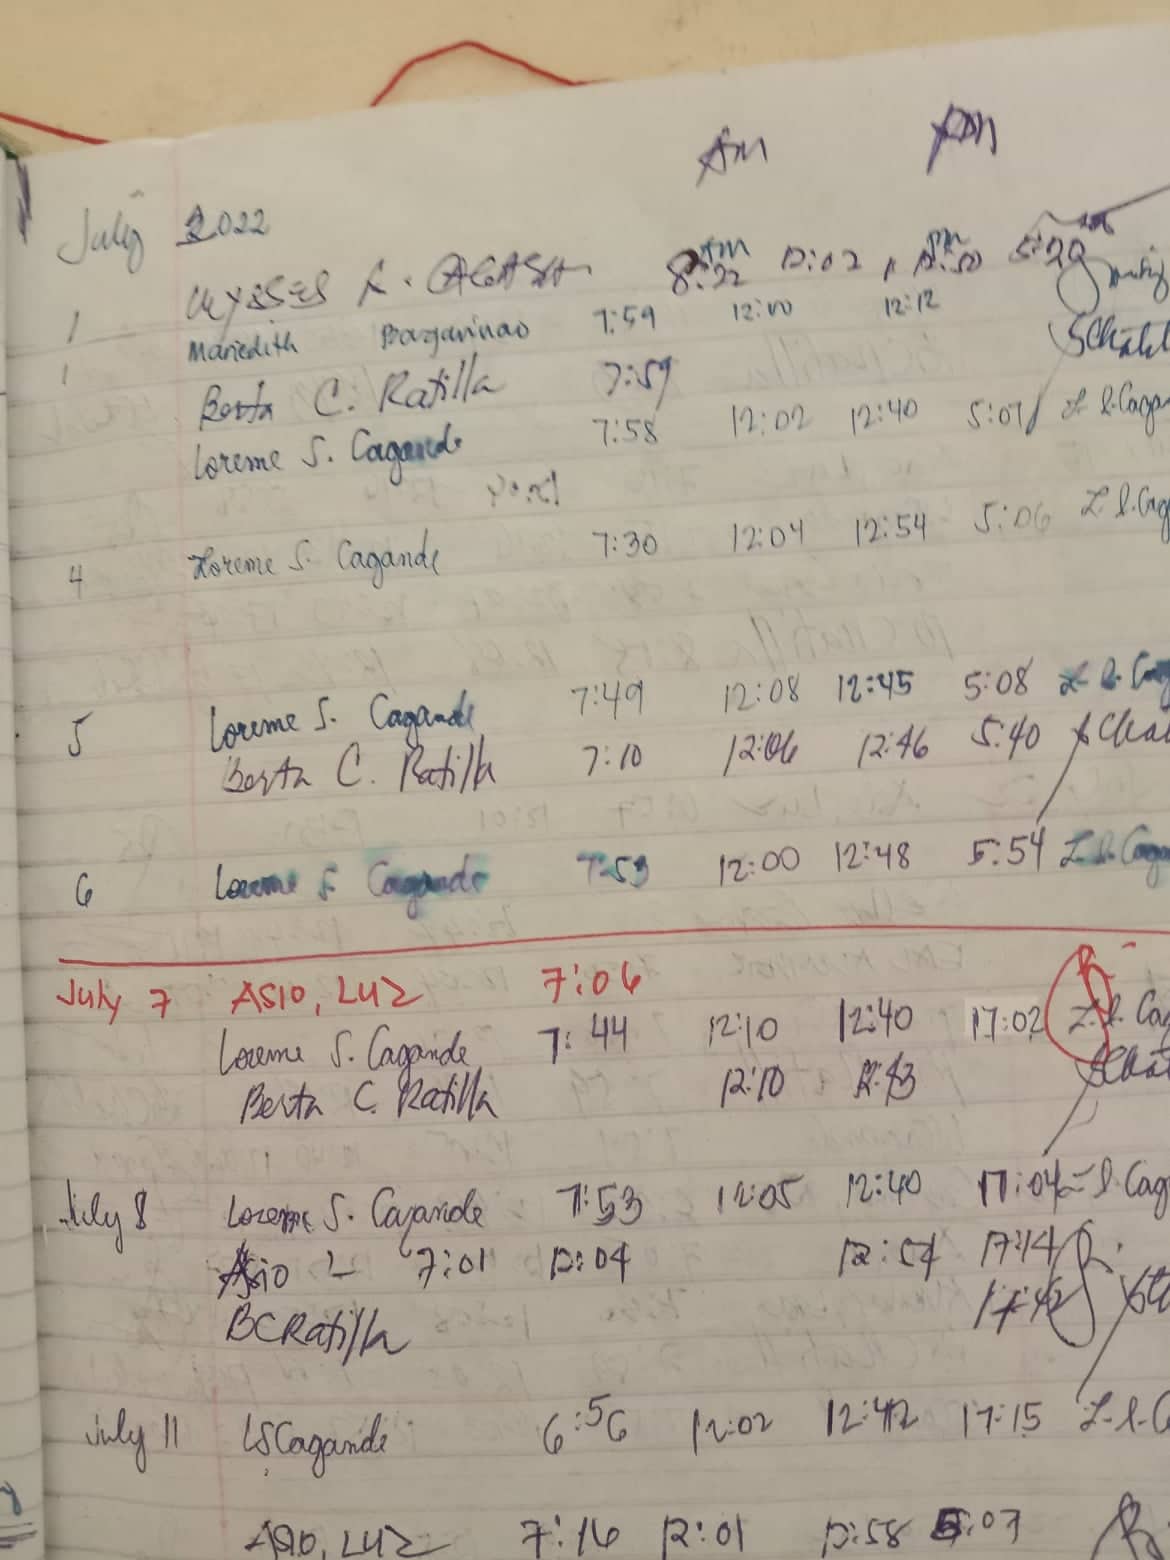 AM PM
July 2022
1 ULYSSES R. 8:22 AM 12:02 PM 5:20
1 Mariedith Bagarinao 7:59 12:00 12:12
Berta C. Ratilla 7:59
Loreme S. Cagande 7:58 12:02 12:40 5:07
4 Loreme S. Cagande 7:30 12:04 12:54 5:06
5 Loreme S. Cagande 7:49 12:08 12:45 5:08
Berta C. Ratilla 7:10 12:06 12:46 5:40
6 Loreme S. Cagande 7:53 12:00 12:48 5:54
July 7 ASIO, LUZ 7:06
Loreme S. Cagande 7:44 12:10 12:40 17:02
Berta C. Ratilla 12:10
July 8 Loreme S. Cagande 7:53 12:05 12:40 17:04
Asio L 7:01 12:04 12:54 17:14
BCRatilla
July 11 LSCagande 6:56 12:02 12:42 17:15
ASIO, LUZ 7:16 12:01 12:58 5:07